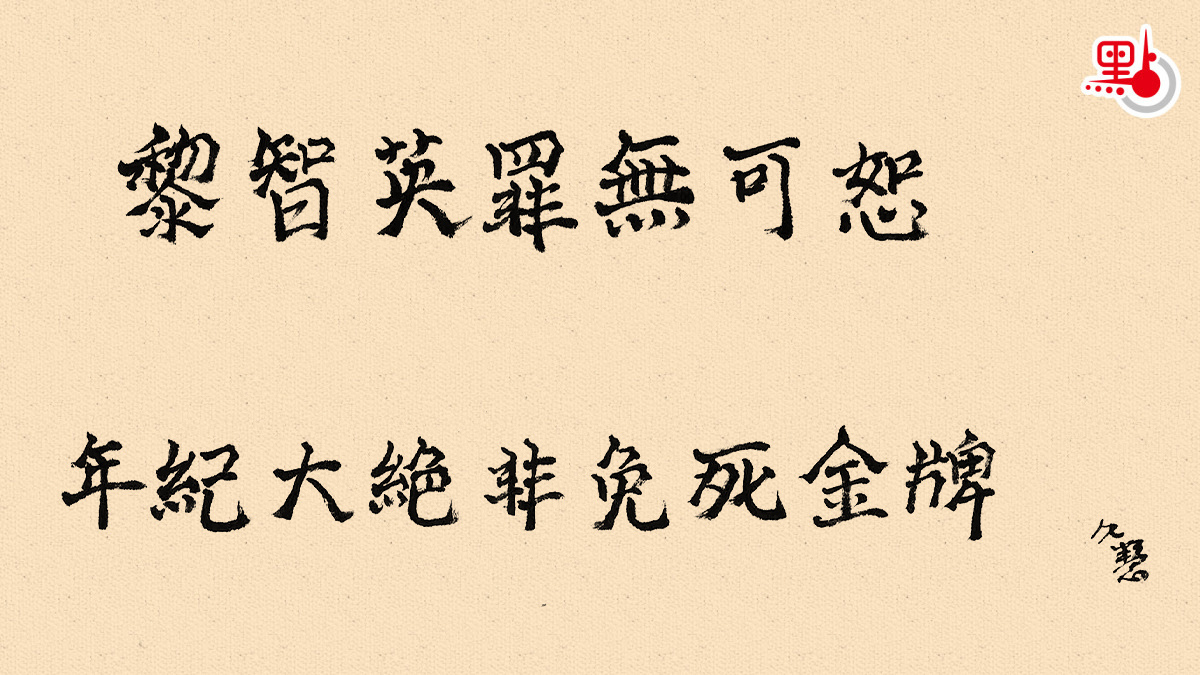 點
黎智英罪無可恕
年紀大絕非免死金牌
久慧